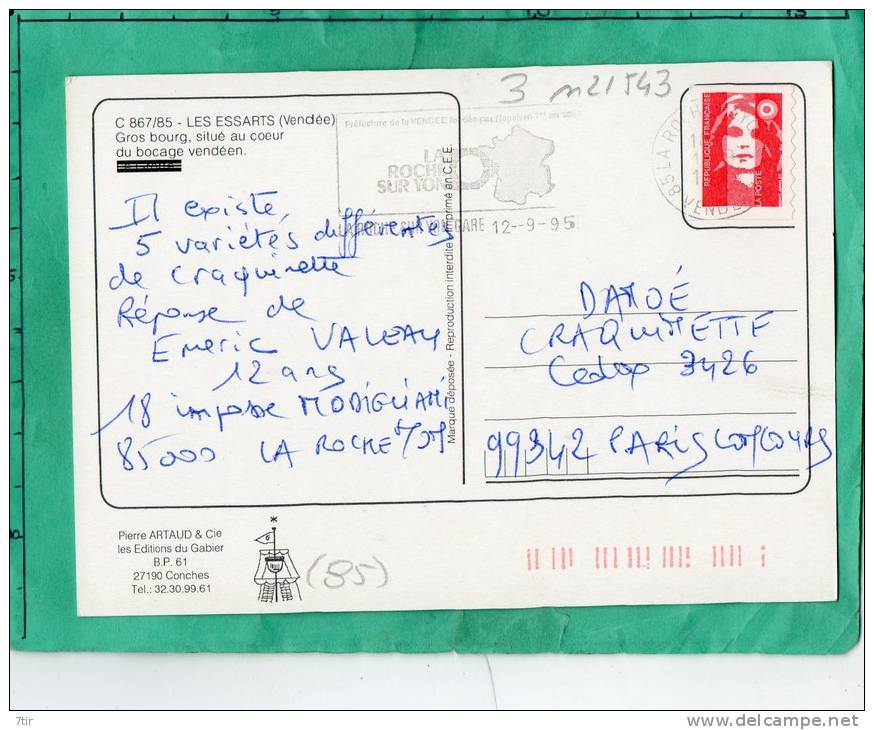 3 n21543
C 867/85 - LES ESSARTS (Vendée)
Gros bourg, situé au coeur
du bocage vendéen.
Préfecture de la VENDEE
LA
ROCHE
SUR YON
LA ROCHE SUR YON GARE 12--9-95
85 LA ROCHE
VENDEE
REPUBLIQUE FRANÇAISE
LA POSTE
Il existe
5 variétés différentes
de craquinette
Réponse de
Emeric VALEAU
12 ans
18 impasse MODIGLIANI
85000 LA ROCHE S/YON
Marque déposée - Reproduction interdite Imprimé en C.E.E.
DANOÉ
CRAQUINETTE
Cedex 3426
99342 PARIS CONCOURS
Pierre ARTAUD & Cie
les Editions du Gabier
B.P. 61
27190 Conches
Tel.: 32.30.99.61
(85)
7tir
www.delcampe.net